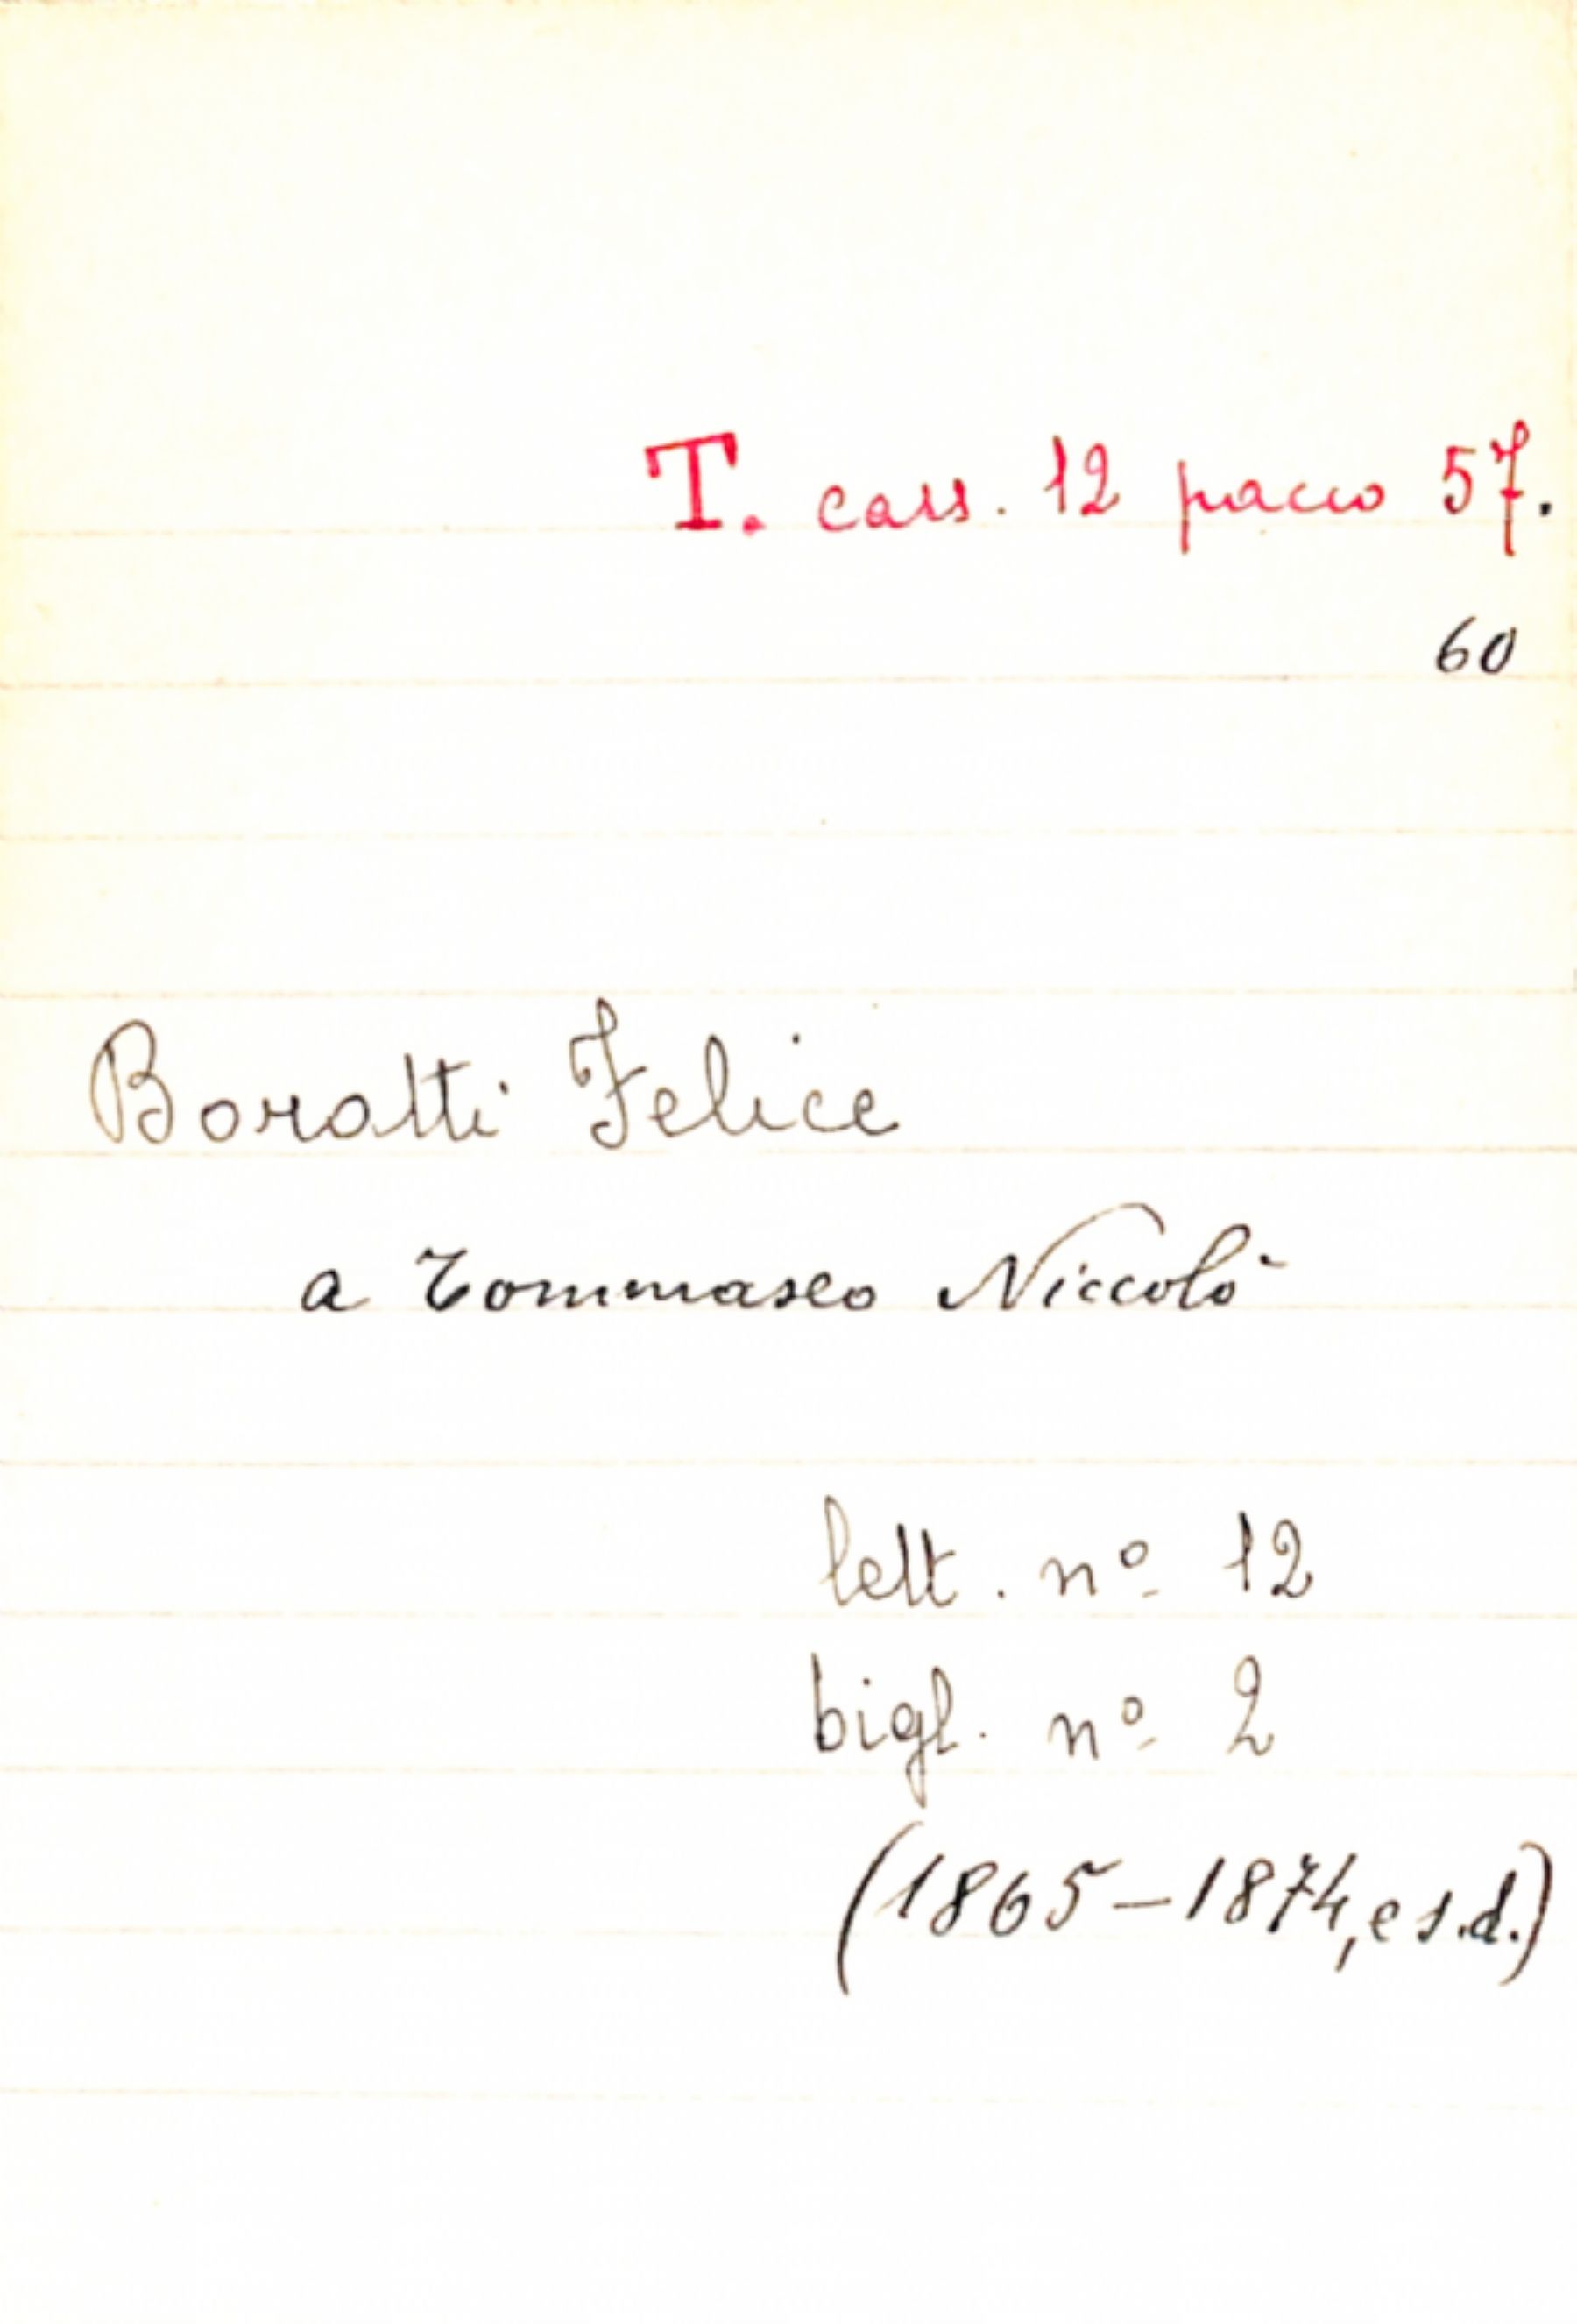 T. cass. 12 pacco 57.
60
Boratti Felice
a Tommaseo Niccolò
lett. nº 12
bigl. nº 2
(1865-1874, e s.d.)